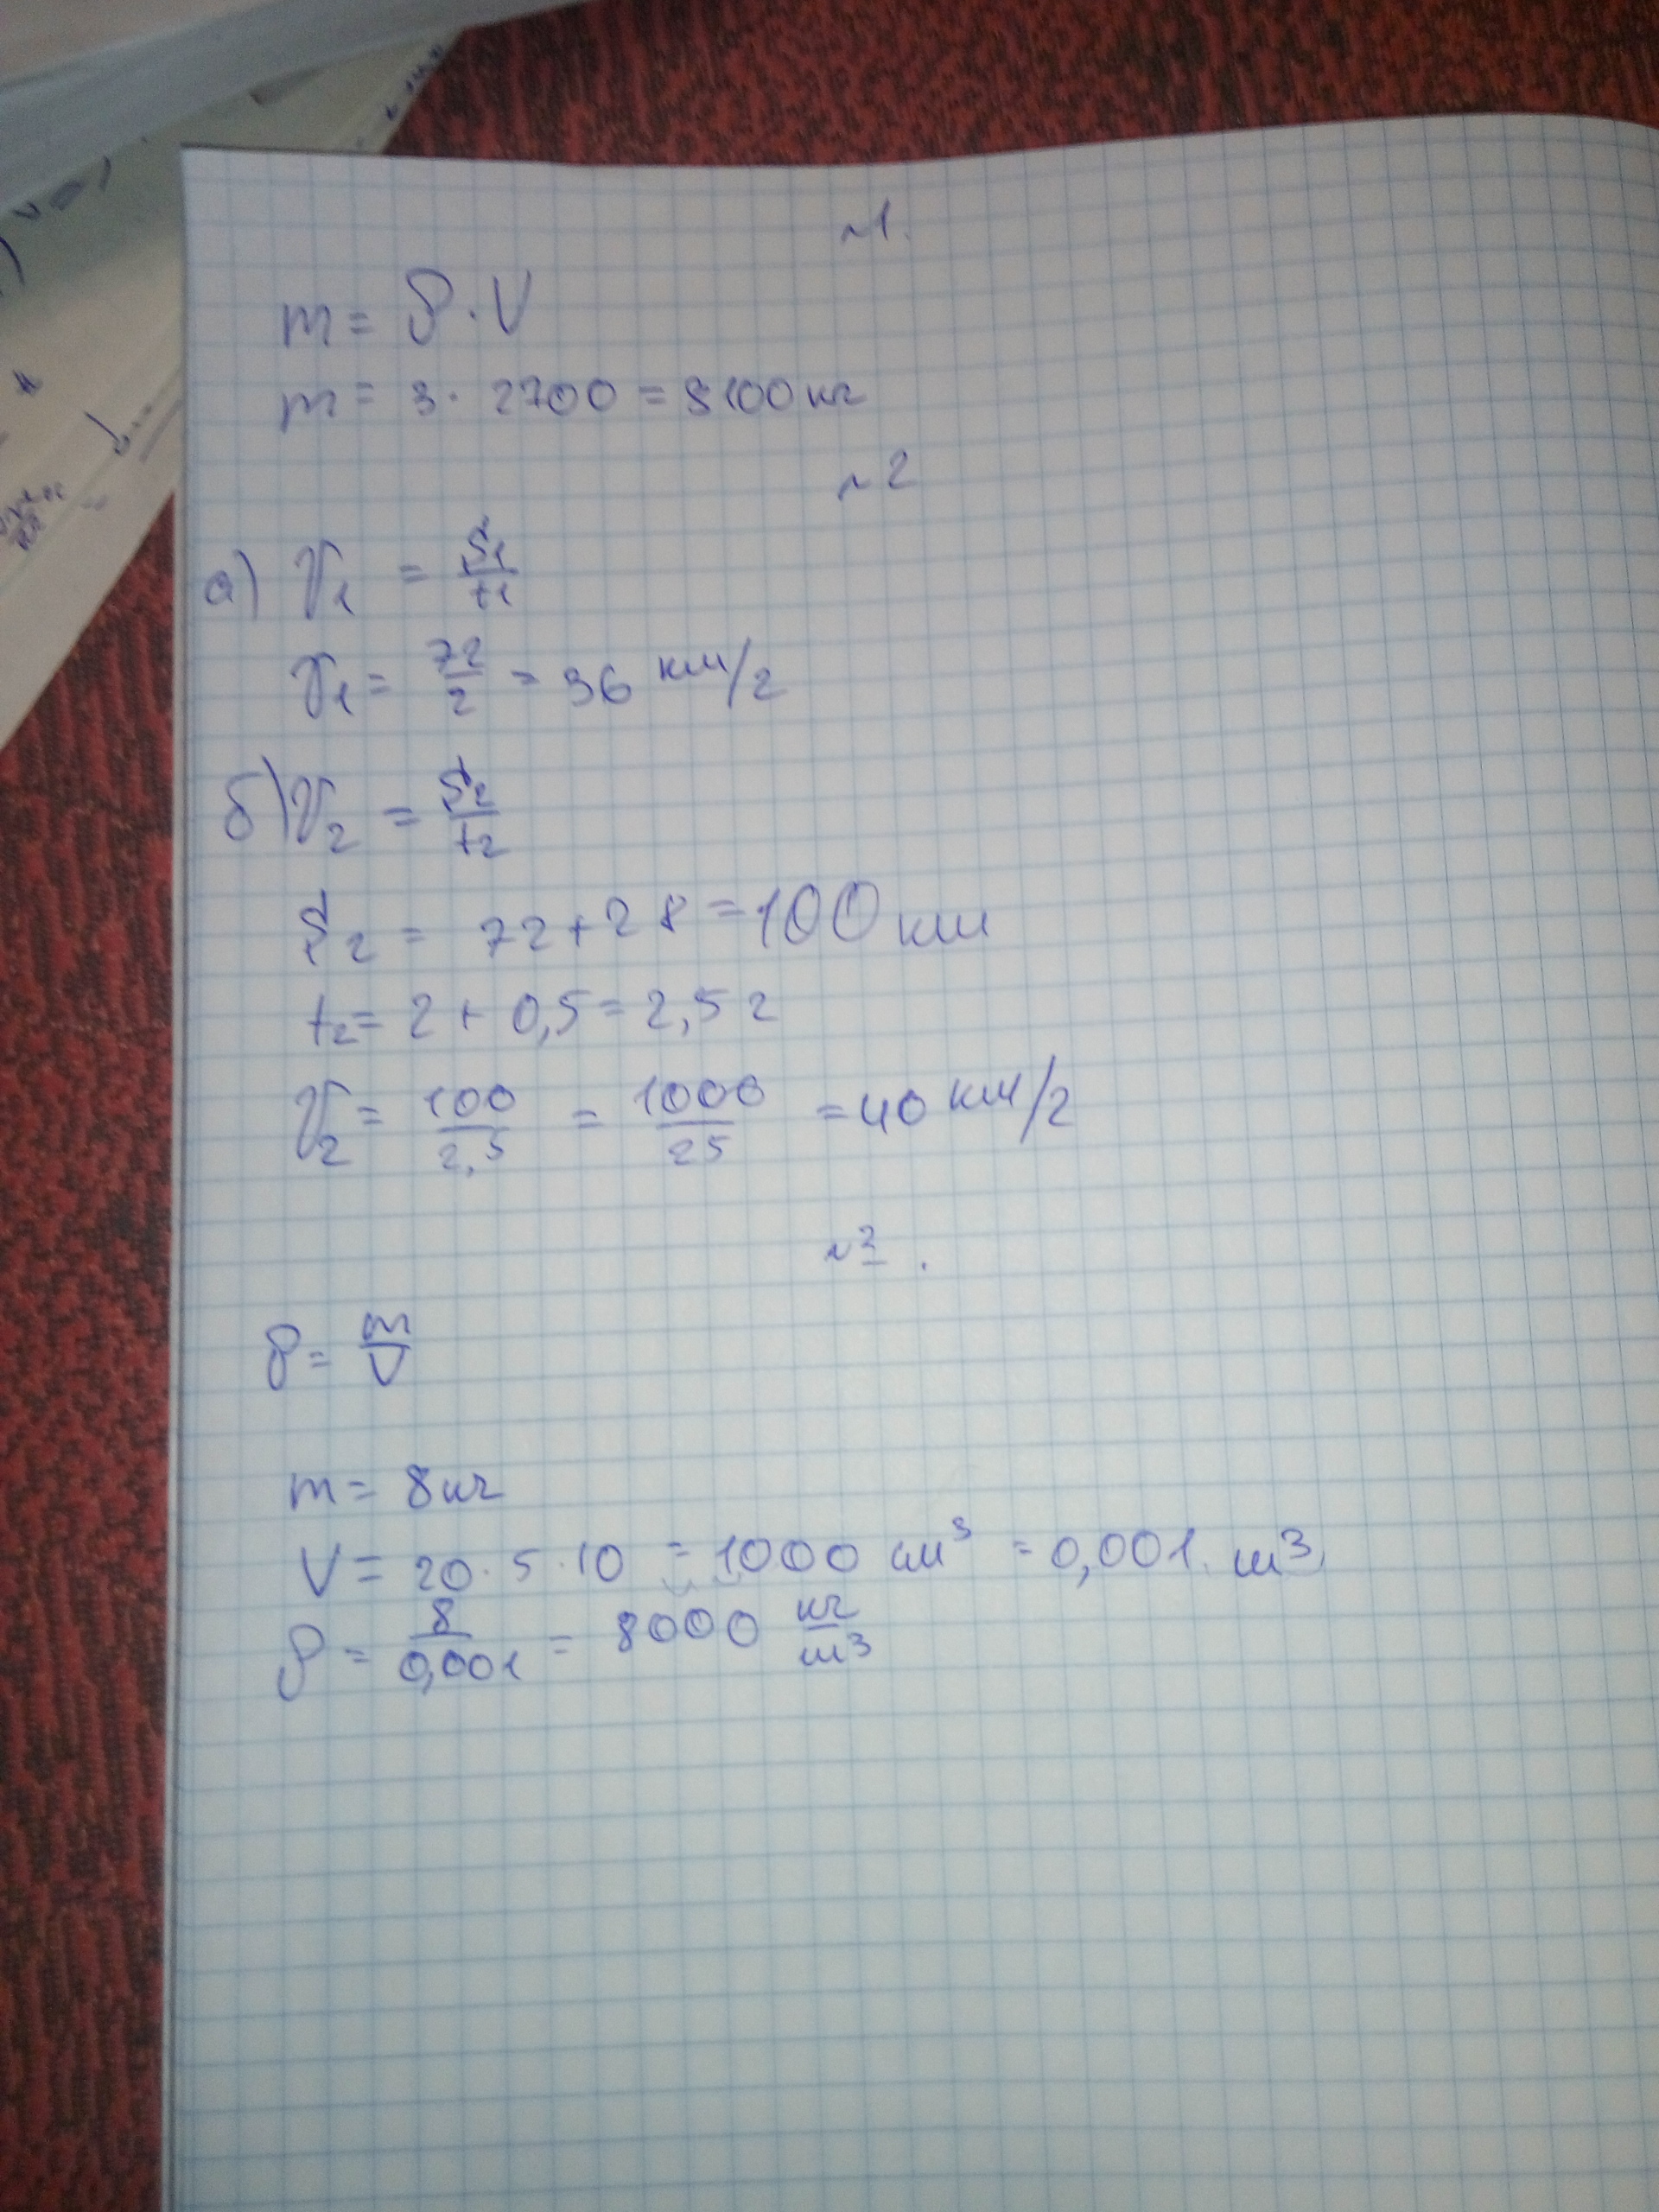 №1.
m = ρ · V
m = 3 · 2700 = 8100 кг
№2
а) V₁ = S₁/t₁
V₁ = 72/2 = 36 км/г
б) V₂ = S₂/t₂
S₂ = 72 + 28 = 100 км
t₂ = 2 + 0,5 = 2,5 г
V₂ = 100/2,5 = 1000/25 = 40 км/г
№3.
ρ = m/V
m = 8 кг
V = 20 · 5 · 10 = 1000 см³ = 0,001 м³
ρ = 8/0,001 = 8000 кг/м³